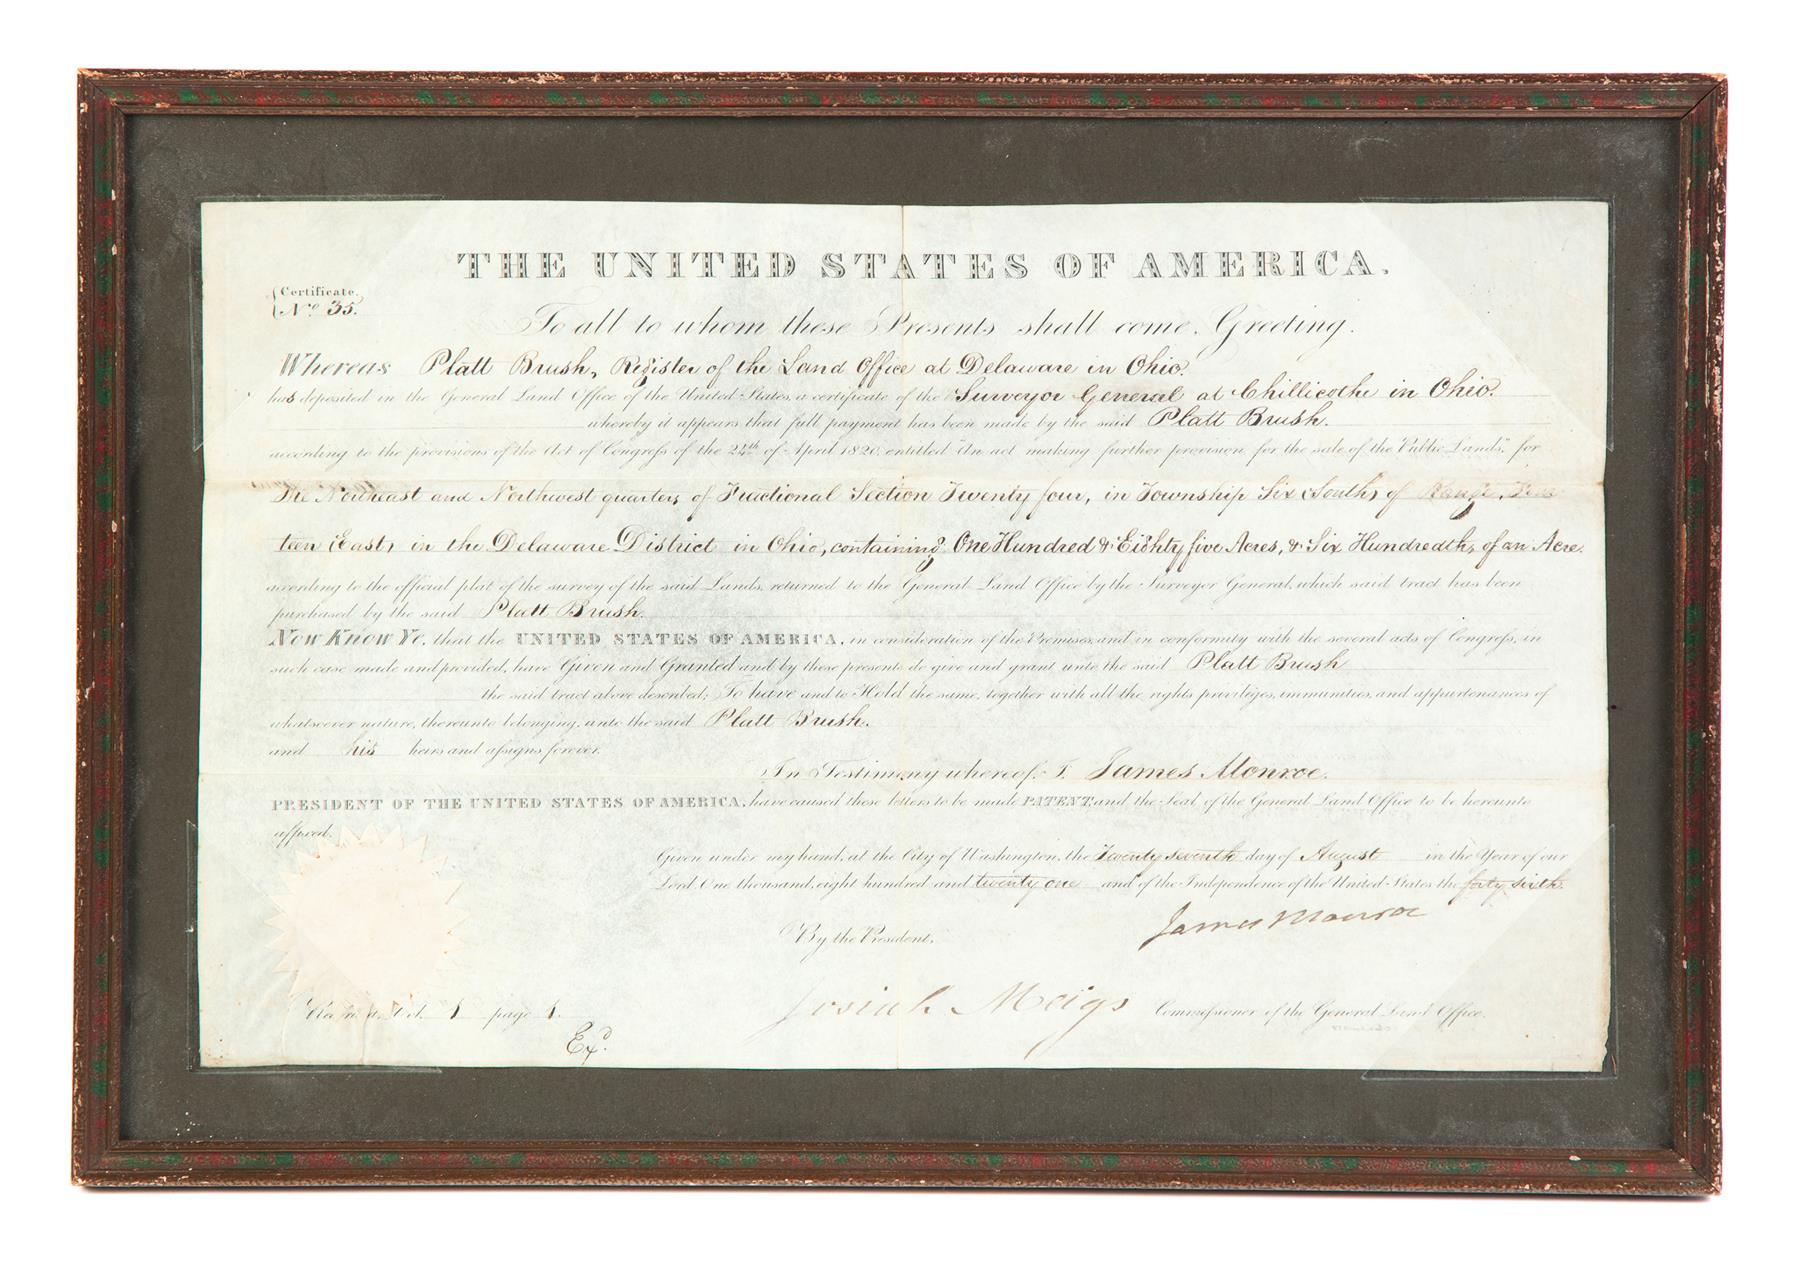 THE UNITED STATES OF AMERICA.
Certificate.
No 35.
To all to whom these Presents shall come, Greeting.
Whereas Platt Brush, Register of the Land Office at Delaware in Ohio.
has deposited in the General Land Office of the United States, a certificate of the Surveyor General at Chillicothe in Ohio.
whereby it appears that full payment has been made by the said Platt Brush.
according to the provisions of the Act of Congress of the 24th of April 1820, entitled "An act making further provision for the sale of the Public Lands," for
The Northeast and Northwest quarters of Fractional Section Twenty four, in Township Six (South) of Range
teen (East) in the Delaware District in Ohio, containing One Hundred & Eighty five Acres, & Six Hundredths of an Acre.
according to the official plat of the survey of the said Lands, returned to the General Land Office by the Surveyor General, which said tract has been
purchased by the said Platt Brush.
Now Know Ye, that the UNITED STATES OF AMERICA, in consideration of the Premises, and in conformity with the several acts of Congress, in
such case made and provided, have Given and Granted and by these presents do give and grant unto the said Platt Brush
the said tract above described; To have and to Hold the same, together with all the rights, privileges, immunities, and appurtenances of
whatsoever nature, thereunto belonging, unto the said Platt Brush.
and his heirs and assigns forever.
In Testimony whereof, I, James Monroe.
PRESIDENT OF THE UNITED STATES OF AMERICA, have caused these letters to be made PATENT, and the Seal of the General Land Office to be hereunto
affixed.
Given under my hand, at the City of Washington, the Twenty seventh day of August in the Year of our
Lord One thousand, eight hundred and twenty one and of the Independence of the United States the forty sixth.
James Monroe
By the President,
Josiah Meigs Commissioner of the General Land Office.
Vol. 1 page 1.
Exd.